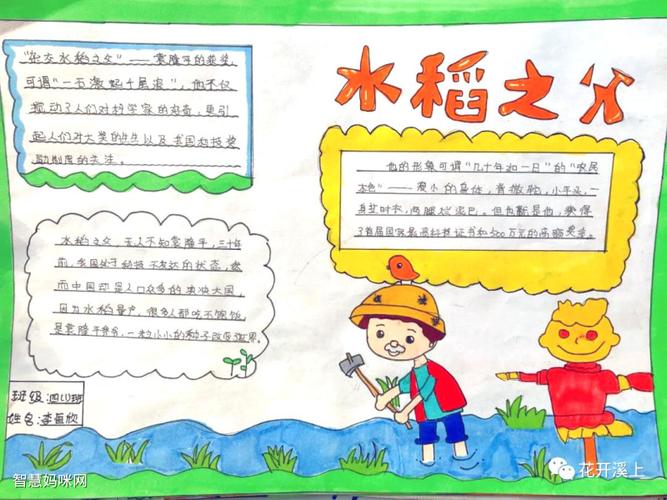 水稻之父
"杂交水稻之父"——袁隆平的获奖,
可谓"一石激起千层浪",他不仅
搅动了人们对科学家的好奇,更引
起人们对大奖的产生以及我国科技奖
励制度的关注。
他的形象可谓"几十年如一日"的"农民
本色"——瘦小的身体,背微驼,小平头,一
身 衣,两腿 泥巴。但也就是他,获得
了首届国家最高科技证书和500万元的高额奖金。
水稻之父,无人不知袁隆平,三十年
前,我国处于科技不发达的状态,然
而中国却是人口众多的 大国,
因为水稻量产,很多人都吃不饱饭,
是袁隆平爷爷,一粒小小的种子改变世界。
班级:四 班
姓名:李 欣
智慧妈咪网
花开溪上